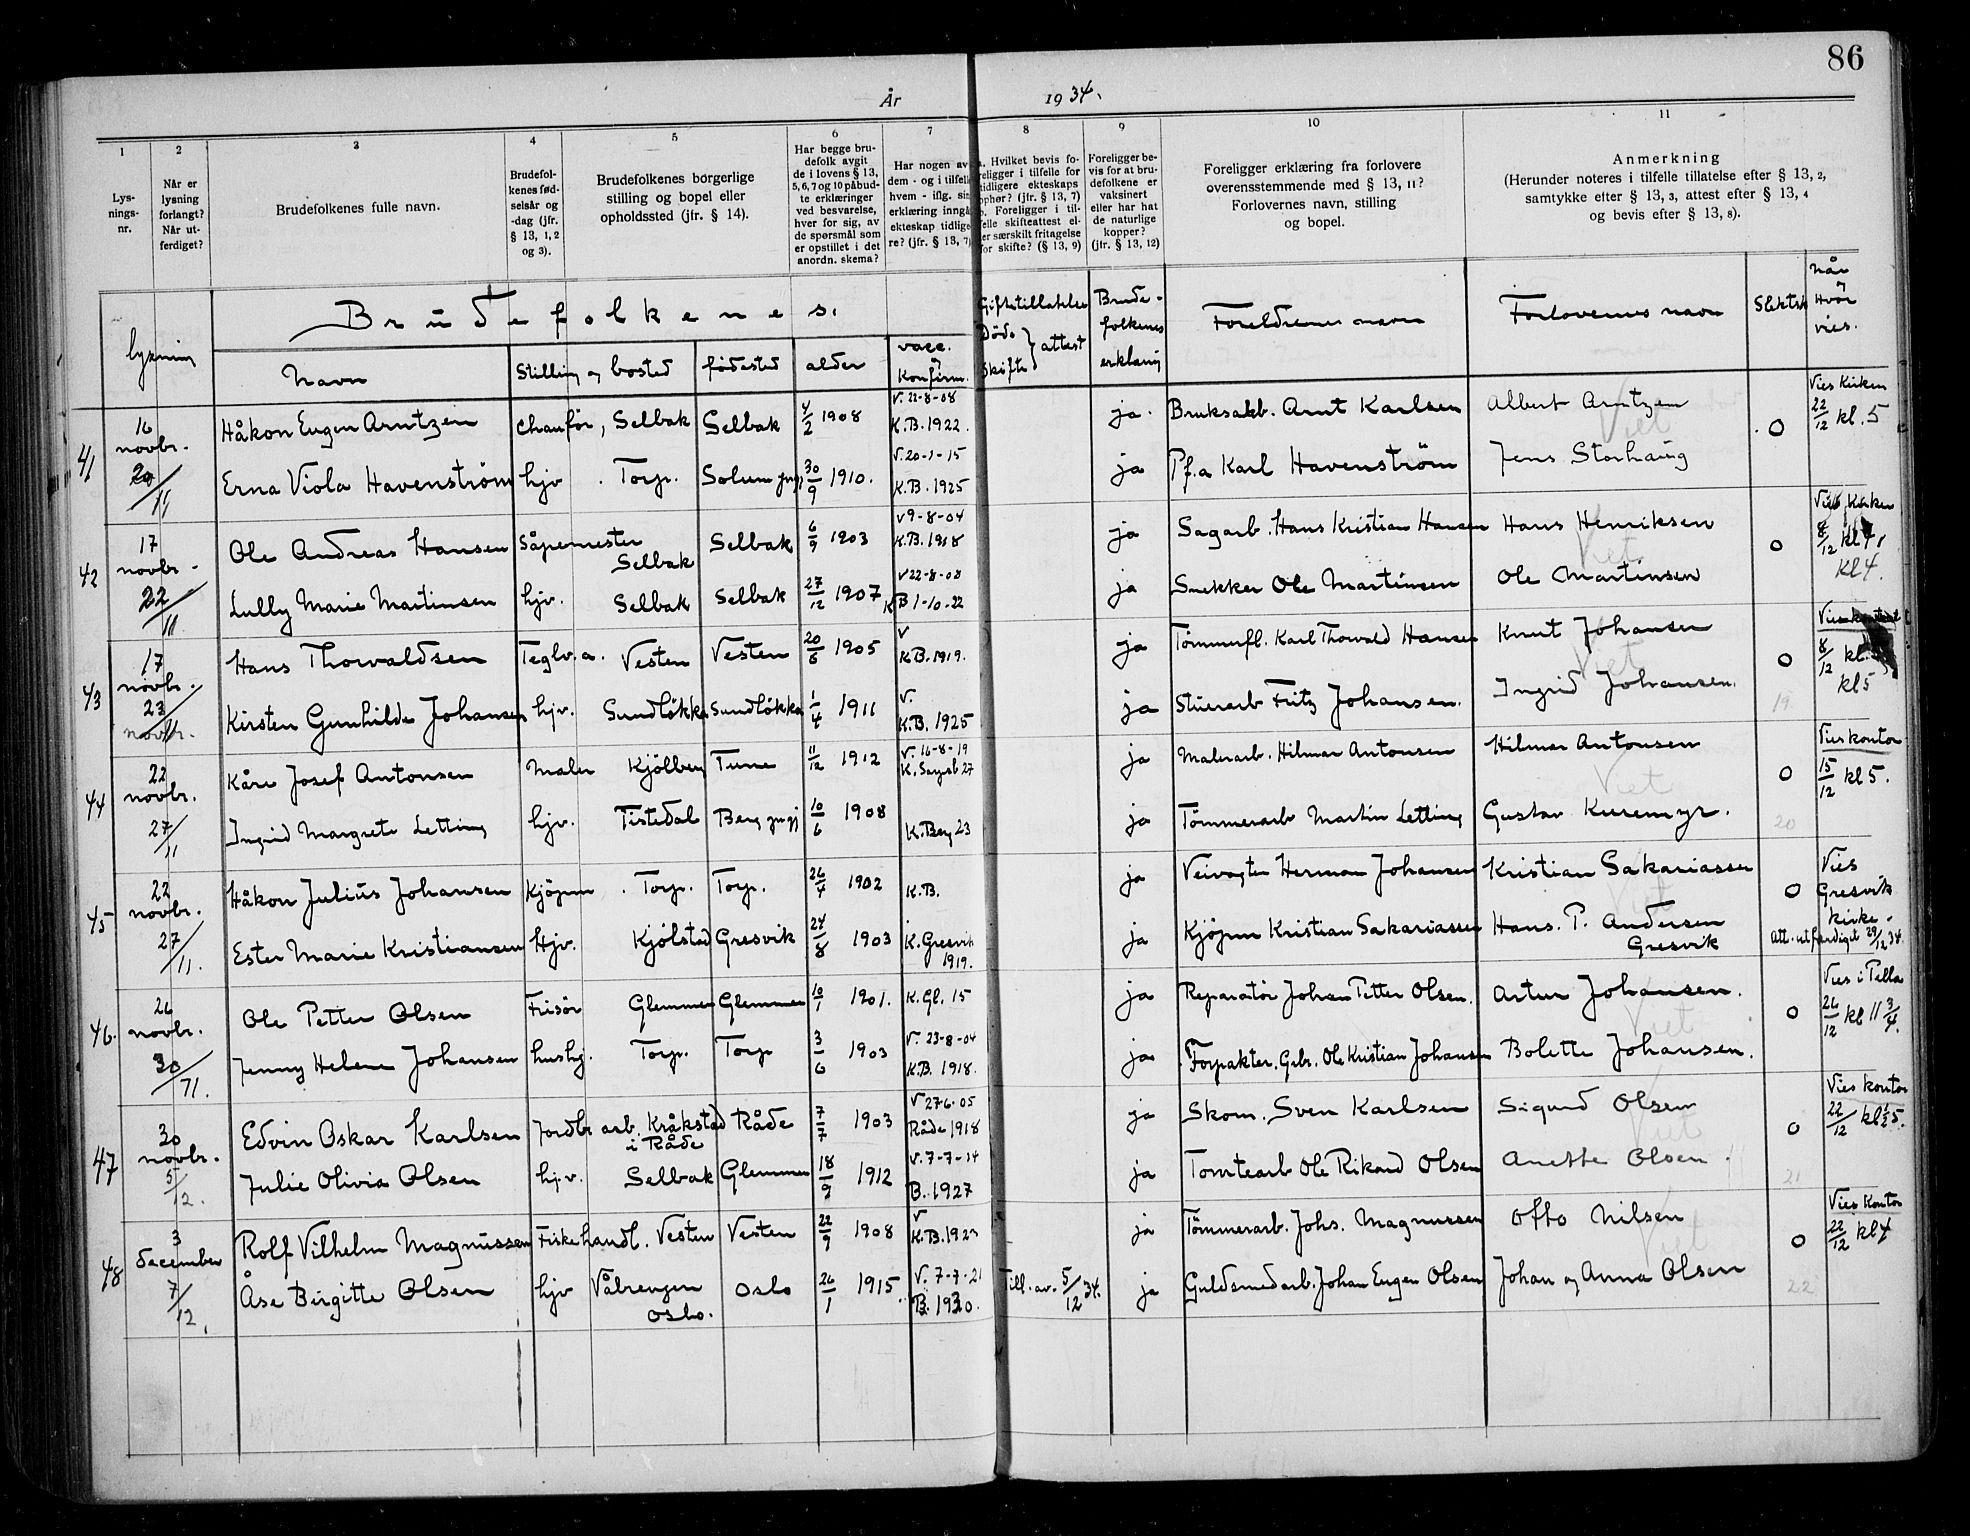 86
År 1934.
1 2 3 4 5 6 7 8 9 10 11
Lys-
nings-
nr.
Når er
lysning
forlangt?
Når ut-
ferdiget?
Brudefolkenes fulle navn.
Brudefol-
kenes fød-
selsår og
-dag (jfr.
§ 13, 1, 2
og 3).
Brudefolkenes borgerlige
stilling og bopel eller
opholdssted (jfr. § 14).
Har begge bru-
defolk avgit
de i lovens § 13,
5, 6, 7 og 10 påbud-
te erklæringer
ved besvarelse,
hver for sig, av
de spørsmål som
er opstillet i det
anordn. skema?
Har nogen av
dem - og i tilfelle
hvem - iflg. sin
erklæring inngå
ekteskap tidlige
re? (jfr. § 13, 7)
a. Hvilket bevis fo-
religger i tilfelle for
tidligere ekteskaps
ophør? (jfr. § 13, 7)
b. Foreligger i til-
felle skifteattest el-
ler særskilt fritagelse
for skifte? (§ 13, 9)
Foreligger be-
vis for at bru-
defolkene er
vaksinert
eller har hat
de naturlige
kopper?
(jfr. § 13, 12)
Foreligger erklæring fra forlovere
overensstemmende med § 13, 11?
Forlovernes navn, stilling
og bopel.
Anmerkning
(Herunder noteres i tilfelle tillatelse efter § 13, 2,
samtykke efter § 13, 3, attest efter § 13, 4
og bevis efter § 13, 8).
lysning
Brudefolkenes.
Navn Stilling og bosted fødested alder vacc. og Konfirm.
Giftetillatelse
Döds
Skifte } attest
Brude-
folkenes
erklæring
Foreldrenes navn
Forlovernes navn
Slektsk
Når
Hvor
vies.
41 16 novbr. Håkon Eugen Arntzen chaufør, Selbak Selbak 4/2 1908 V. 22-8-08 K.B. 1922. ja. Bruksarb. Arnt Karlsen Albert Arntzen Viet O Vies Kirken 22/12 kl. 5
20/11 Erna Viola Havenström hjv. Torp. Solum 30/9 1910. V. 20-1-15 K.B. 1925 ja Pf.a Karl Havenström Jens Storhaug
42 17 novbr. Ole Andreas Hansen Såpemester Selbak Selbak 6/9 1903 v 9-8-04 K.B. 1918 ja Sagarb. Hans Kristian Hansen Hans Henriksen Viet O Vies Kirken 8/12 kl 4.
22/11 Lully Marie Martinsen hjv. Selbak Selbak 27/12 1907 v 22-8-08 KB 1-10-22 ja Snekker Ole Martinsen Ole Martinsen
43 17 novbr. Hans Thorvaldsen Teglv.a. Vesten Vesten 20/6 1905 V K.B. 1919. ja Tømmerfl. Karl Thorvald Hansen Knut Johansen Viet O Vies kontoret 8/12 kl. kl 5
23 novbr. Kirsten Gunhilde Johansen hjv. Sundløkka Sundløkka 1/4 1911 V. K.B. 1925 ja Stuerarb Fritz Johansen. Ingrid Johansen. 19.
44 22 novbr. Kåre Josef Antonsen Maler Kjölberg Tune 11/12 1912 V. 16-8-19 K. Sarpsb 27 ja Malerarb. Hilmar Antonsen Hilmar Antonsen Viet O Vies kontor 15/12 kl 5.
27/11 Ingrid Margrete Letting hjv. Tistedal Berg 10/6 1908 K. Berg 23 ja Tømmerarb Martin Letting Gustav Kuremyr. 20
45 22 novbr. Håkon Julius Johansen Kjøpm. Torp. Torp. 26/4 1902 K.B. ja Veivogter Herman Johansen Kristian Sakariassen Viet O Vies Gresvik kirke.
27/11. Ester Marie Kristiansen Hjv. Kjölstad Gresvik 24/8 1903 K. Gresvik 1919. ja Kjøpm Kristian Sakariassen Hans. P. Andersen Gresvik Att. utferdiget 29/12 34.
46. 26 novbr. Ole Petter Olsen Frisør Glemmen Glemmen 10/1 1901. K. Gl. 15 ja Reparatör Johan Petter Olsen. Artur Johansen. Viet O Vies i Pella 26/12 kl 11 3/4.
30/11. Jenny Helene Johansen hushj. Torp. Torp 3/6 1903 V. 23-8-04 K.B. 1918. ja Forpakter. Gbr. Ole Kristian Johansen Bolette Johansen.
47 30 novbr. Edvin Oskar Karlsen Jordbr arb. Kråkstad i Råde Råde 7/7 1903 V 27-6-05 Råde 1918 ja Skom. Sven Karlsen Sigurd Olsen Viet O Vies kontor 22/12 kl 1/2 5.
5/12. Julie Olivia Olsen hj.v. Selbak Glemmen 18/9 1912 V. 7-7-14 B. 1927 ja Tomtearb Ole Rikard Olsen Anette Olsen. 21
48 3 december Rolf Vilhelm Magnussen Fiskehandl. Vesten Vesten 22/9 1908 V K.B. 1923 ja Tømmerarb. Johs. Magnussen Otto Nilsen Viet O Vies Kontor 22/12 kl 4
7/12. Åse Birgitte Olsen hjv Vålrengen Oslo. Oslo 26/1 1915. V. 7-7-21 B. 1930. Till. av. 5/12 34. ja Guldsmedarb. Johan Eugen Olsen Johan og Anna Olsen 22